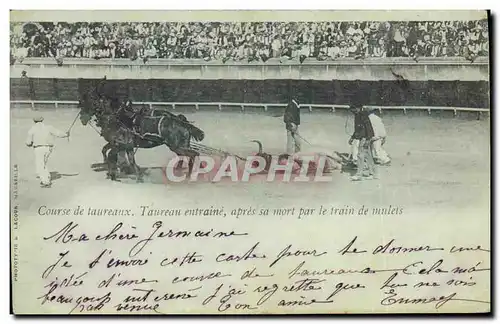 Course de taureaux. Taureau entrainé, après sa mort par le train de mulets
CPARAMA
PHOTOTYPIE LACOUR MARSEILLE
Ma chère Germaine
Je t'envoi cette carte pour te donner une
idée d'une course de taureaux Cela m'a
beaucoup intérené j'ai regretté que tu ne sois
pas venue Ton amie